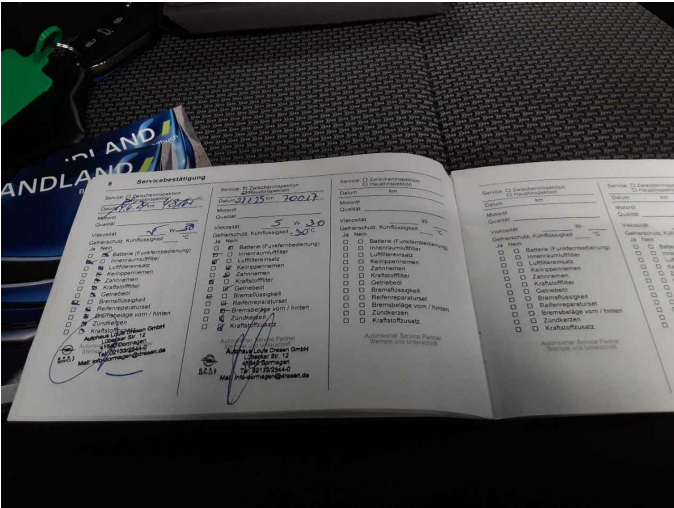 ANDLAND
6 Servicebestätigung
Service: Zwischeninspektion
Hauptinspektion
Datum km
Motoröl
Qualität
Viskosität W-
Gefrierschutz, Kühlflüssigkeit °C
Ja Nein
Batterie (Funkfernbedienung)
Innenraumluftfilter
Luftfiltereinsatz
Keilrippenriemen
Zahnriemen
Kraftstofffilter
Getriebeöl
Bremsflüssigkeit
Reifenreparaturset
Bremsbeläge vorn / hinten
Zündkerzen
Kraftstoffzusatz
Autohaus Louis Dresen GmbH
Lübecker Str. 12
41540 Dormagen
Tel. 02133/2544-0
Mail: info-dormagen@dresen.de
Service: Zwischeninspektion
Hauptinspektion
Datum 21.1.25 km 70017
Motoröl
Qualität
Viskosität 5 W- 30
Gefrierschutz, Kühlflüssigkeit -30 °C
Ja Nein
Batterie (Funkfernbedienung)
Innenraumluftfilter
Luftfiltereinsatz
Keilrippenriemen
Zahnriemen
Kraftstofffilter
Getriebeöl
Bremsflüssigkeit
Reifenreparaturset
Bremsbeläge vorn / hinten
Zündkerzen
Kraftstoffzusatz
Autohaus Louis Dresen GmbH
Lübecker Str. 12
41540 Dormagen
Tel. 02133/2544-0
Mail: info-dormagen@dresen.de
Service: Zwischeninspektion
Hauptinspektion
Datum km
Motoröl
Qualität
Viskosität W-
Gefrierschutz, Kühlflüssigkeit °C
Ja Nein
Batterie (Funkfernbedienung)
Innenraumluftfilter
Luftfiltereinsatz
Keilrippenriemen
Zahnriemen
Kraftstofffilter
Getriebeöl
Bremsflüssigkeit
Reifenreparaturset
Bremsbeläge vorn / hinten
Zündkerzen
Kraftstoffzusatz
Autorisierter Service Partner
Stempel und Unterschrift
Service: Zwischeninspektion
Hauptinspektion
Datum km
Motoröl
Qualität
Viskosität W-
Gefrierschutz, Kühlflüssigkeit °C
Ja Nein
Batterie (Funkfernbedienung)
Innenraumluftfilter
Luftfiltereinsatz
Keilrippenriemen
Zahnriemen
Kraftstofffilter
Getriebeöl
Bremsflüssigkeit
Reifenreparaturset
Bremsbeläge vorn / hinten
Zündkerzen
Kraftstoffzusatz
Autorisierter Service Partner
Stempel und Unterschrift